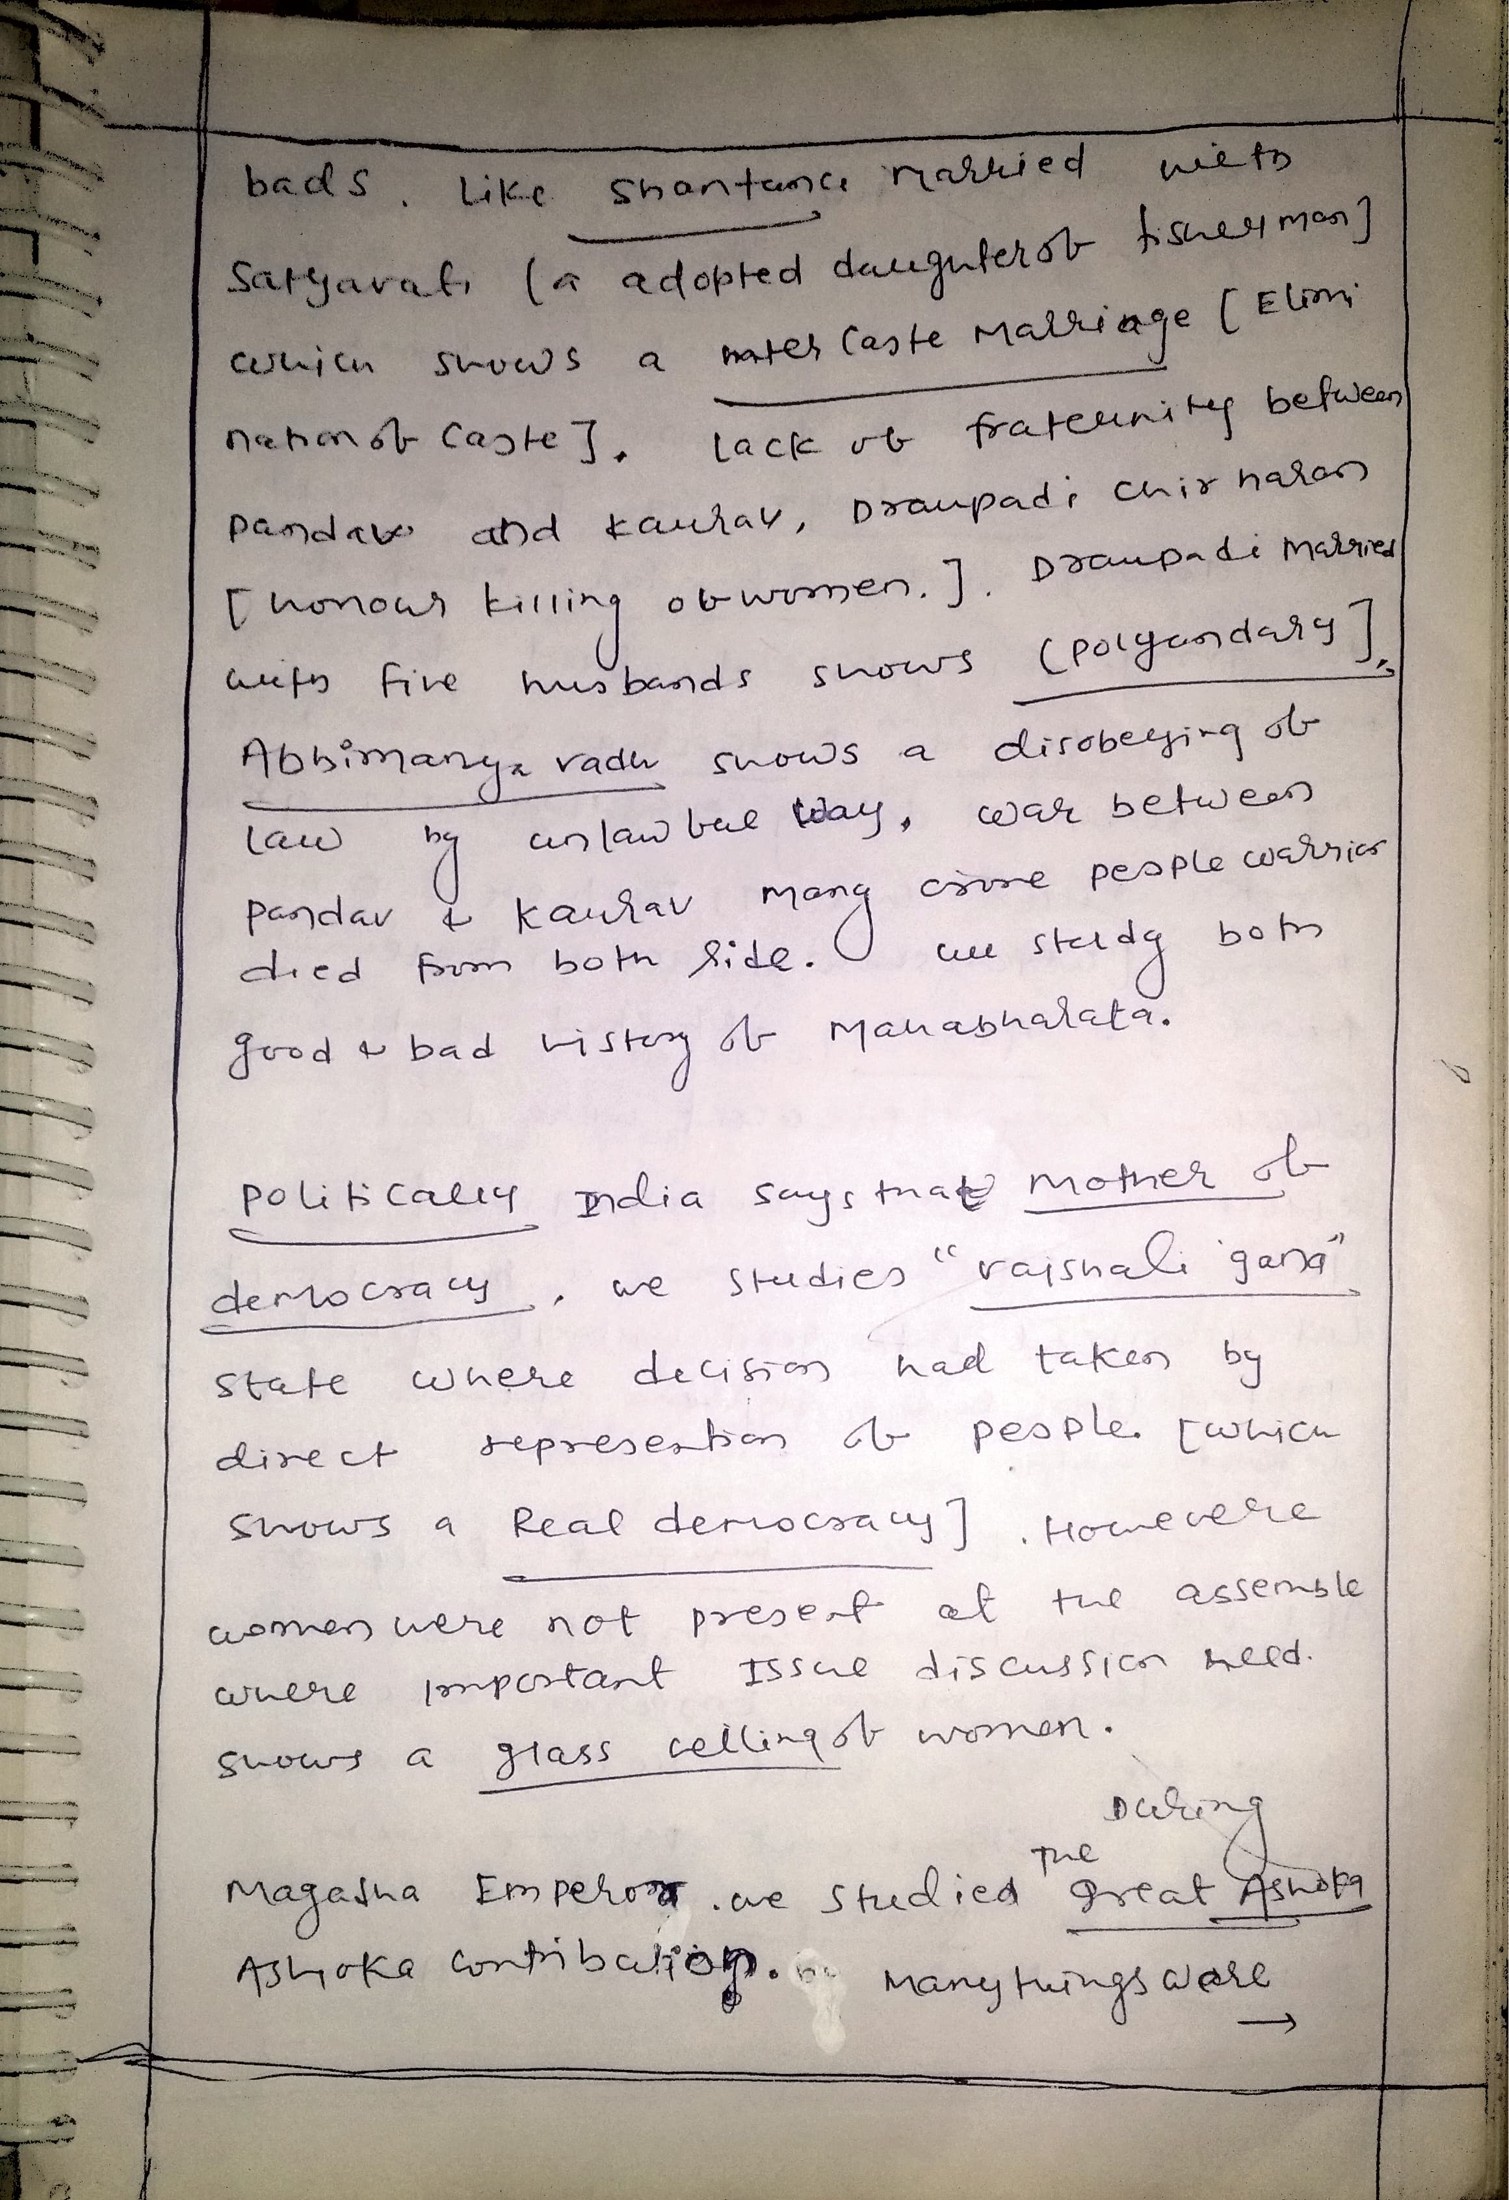 bads. Like Shantanu married with
Satyavati (a adopted daughter of fisherman]
which shows a inter caste Marriage [Elimi
nation of Caste]. Lack of fraternity between
Pandav and Kaurav, Draupadi Chirharan
[honour killing of women.]. Draupadi Married
with five husbands shows (polyandary],
Abhimanyu vadh shows a disobeying of
law by unlawful way, war between
Pandav & Kaurav many people warrior
died from both side. we study both
good & bad history of Mahabharata.
Politically India says that Mother of
democracy, we studies "vaishali gana"
state where decision had taken by
direct represention of people. [which
shows a Real democracy]. Howevere
women were not present at the assemble
where important Issue discussion held.
shows a glass celling of women.
During
Magadha Emperor. we studied the Great Ashoka
Ashoka contribution. Many things were
→